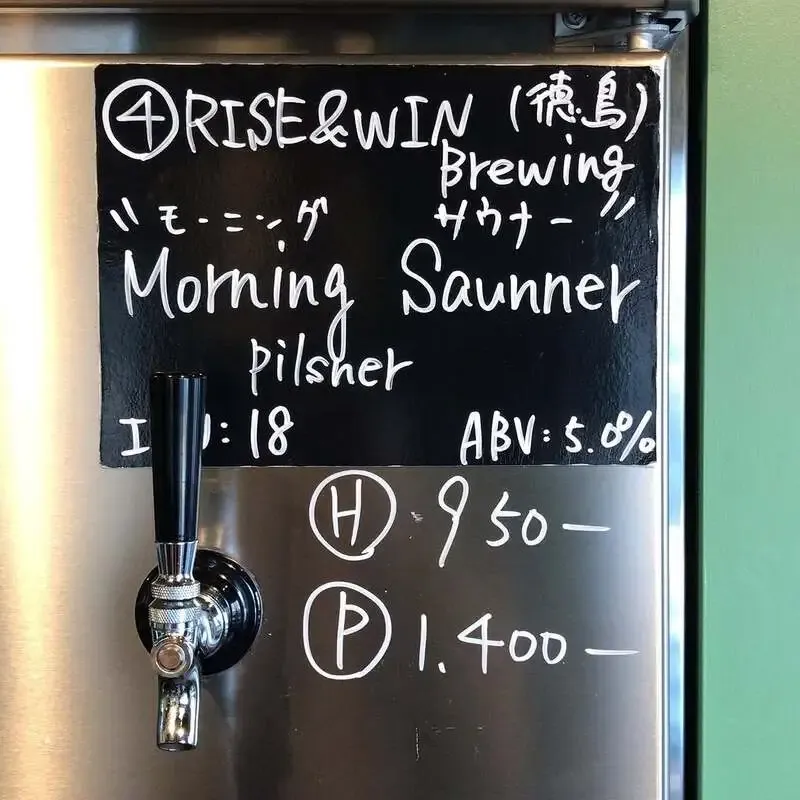 ④RISE&WIN (徳島)
Brewing
"モーニング サウナー"
Morning Saunner
pilsner
: 18 ABV: 5.0%
Ⓗ 950-
Ⓟ 1.400-